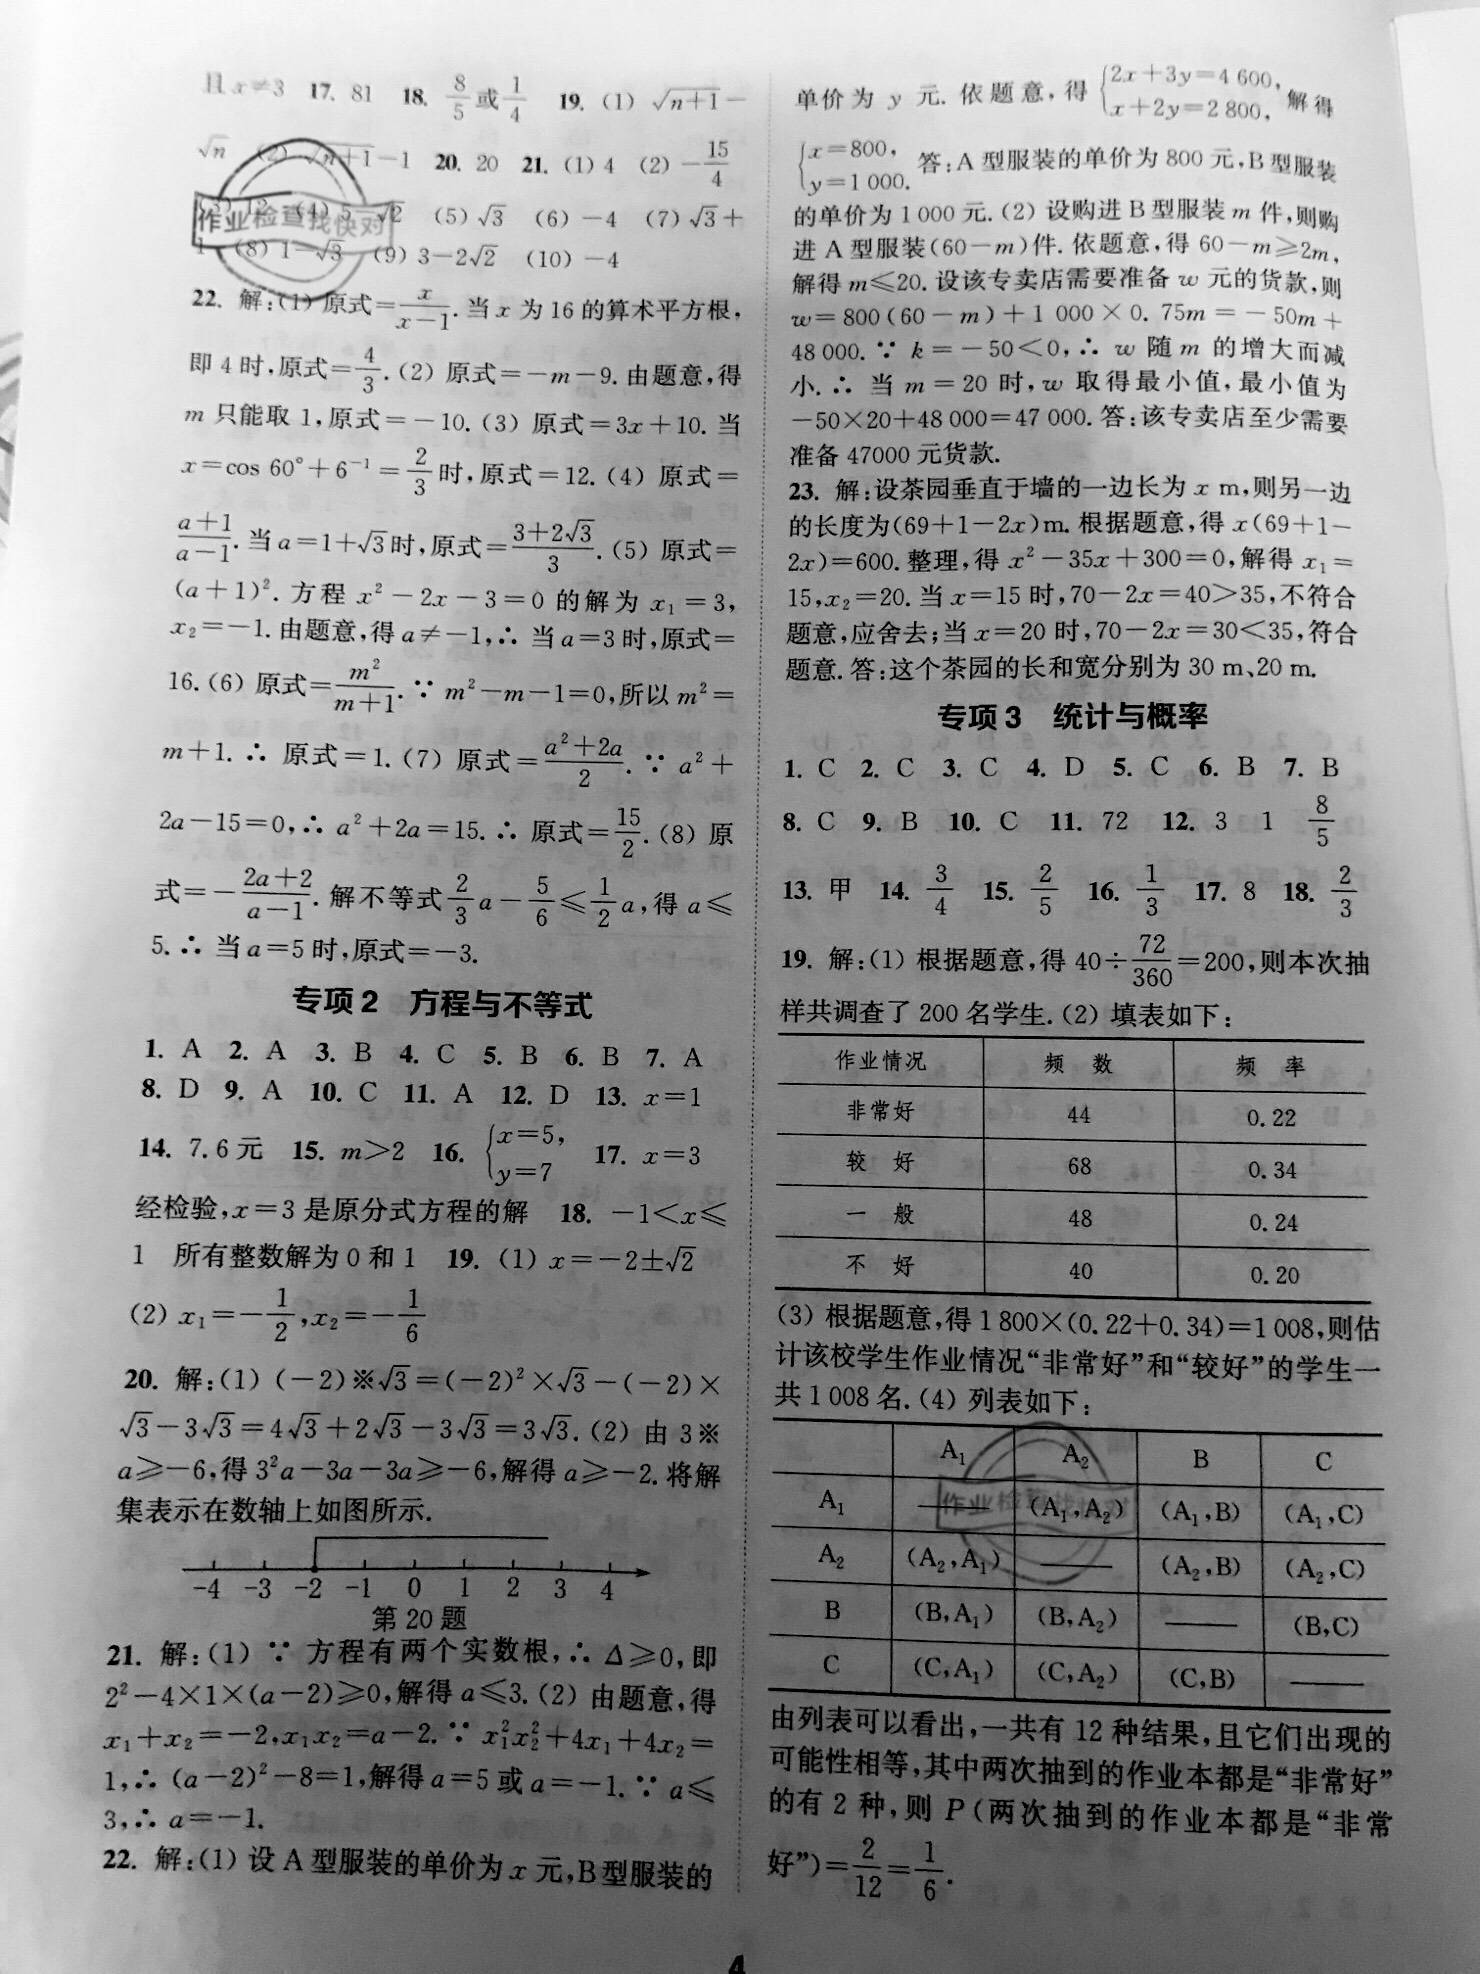 且 x≠3 17. 81 18. 8/5 或 1/4 19. (1) √(n+1)－
√n (2) √(n+1)－1 20. 20 21. (1) 4 (2) －15/4
(3) 12 (4) 5－√2 (5) √3 (6) －4 (7) √3＋
1 (8) 1－√3 (9) 3－2√2 (10) －4
作业检查找快对
22. 解:(1) 原式＝x/(x－1). 当 x 为 16 的算术平方根,
即 4 时,原式＝4/3. (2) 原式＝－m－9. 由题意,得
m 只能取 1,原式＝－10. (3) 原式＝3x＋10. 当
x＝cos 60°＋6⁻¹＝2/3 时,原式＝12. (4) 原式＝
(a＋1)/(a－1). 当 a＝1＋√3 时,原式＝(3＋2√3)/3. (5) 原式＝
(a＋1)². 方程 x²－2x－3＝0 的解为 x₁＝3,
x₂＝－1. 由题意,得 a≠－1,∴ 当 a＝3 时,原式＝
16. (6) 原式＝m²/(m＋1). ∵ m²－m－1＝0,所以 m²＝
m＋1. ∴ 原式＝1. (7) 原式＝(a²＋2a)/2. ∵ a²＋
2a－15＝0,∴ a²＋2a＝15. ∴ 原式＝15/2. (8) 原
式＝－(2a＋2)/(a－1). 解不等式 2/3 a－5/6≤1/2 a,得 a≤
5. ∴ 当 a＝5 时,原式＝－3.
专项2 方程与不等式
1. A 2. A 3. B 4. C 5. B 6. B 7. A
8. D 9. A 10. C 11. A 12. D 13. x＝1
14. 7.6 元 15. m＞2 16. {x＝5, y＝7 17. x＝3
经检验,x＝3 是原分式方程的解 18. －1＜x≤
1 所有整数解为 0 和 1 19. (1) x＝－2±√2
(2) x₁＝－1/2,x₂＝－1/6
20. 解:(1) (－2)※√3＝(－2)²×√3－(－2)×
√3－3√3＝4√3＋2√3－3√3＝3√3. (2) 由 3※
a≥－6,得 3²a－3a－3a≥－6,解得 a≥－2. 将解
集表示在数轴上如图所示.
-4 -3 -2 -1 0 1 2 3 4
第 20 题
21. 解:(1) ∵ 方程有两个实数根,∴ Δ≥0,即
2²－4×1×(a－2)≥0,解得 a≤3. (2) 由题意,得
x₁＋x₂＝－2,x₁x₂＝a－2. ∵ x₁²x₂²＋4x₁＋4x₂＝
1,∴ (a－2)²－8＝1,解得 a＝5 或 a＝－1. ∵ a≤
3,∴ a＝－1.
22. 解:(1) 设 A 型服装的单价为 x 元,B 型服装的
单价为 y 元. 依题意,得 {2x＋3y＝4 600, x＋2y＝2 800, 解得
{x＝800, y＝1 000. 答:A 型服装的单价为 800 元,B 型服装
的单价为 1 000 元. (2) 设购进 B 型服装 m 件,则购
进 A 型服装(60－m)件. 依题意,得 60－m≥2m,
解得 m≤20. 设该专卖店需要准备 w 元的货款,则
w＝800(60－m)＋1 000×0.75m＝－50m＋
48 000. ∵ k＝－50＜0,∴ w 随 m 的增大而减
小. ∴ 当 m＝20 时,w 取得最小值,最小值为
－50×20＋48 000＝47 000. 答:该专卖店至少需要
准备 47000 元货款.
23. 解:设茶园垂直于墙的一边长为 x m,则另一边
的长度为(69＋1－2x)m. 根据题意,得 x(69＋1－
2x)＝600. 整理,得 x²－35x＋300＝0,解得 x₁＝
15,x₂＝20. 当 x＝15 时,70－2x＝40＞35,不符合
题意,应舍去;当 x＝20 时,70－2x＝30＜35,符合
题意. 答:这个茶园的长和宽分别为 30 m、20 m.
专项3 统计与概率
1. C 2. C 3. C 4. D 5. C 6. B 7. B
8. C 9. B 10. C 11. 72 12. 3 1 8/5
13. 甲 14. 3/4 15. 2/5 16. 1/3 17. 8 18. 2/3
19. 解:(1) 根据题意,得 40÷72/360＝200,则本次抽
样共调查了 200 名学生. (2) 填表如下:
作业情况 频 数 频 率
非常好 44 0.22
较 好 68 0.34
一 般 48 0.24
不 好 40 0.20
(3) 根据题意,得 1 800×(0.22＋0.34)＝1 008,则估
计该校学生作业情况“非常好”和“较好”的学生一
共 1 008 名. (4) 列表如下:
A₁ A₂ B C
A₁ —— (A₁,A₂) (A₁,B) (A₁,C)
作业检查找快对
A₂ (A₂,A₁) —— (A₂,B) (A₂,C)
B (B,A₁) (B,A₂) —— (B,C)
C (C,A₁) (C,A₂) (C,B) ——
由列表可以看出,一共有 12 种结果,且它们出现的
可能性相等,其中两次抽到的作业本都是“非常好”
的有 2 种,则 P(两次抽到的作业本都是“非常
好”)＝2/12＝1/6.
4